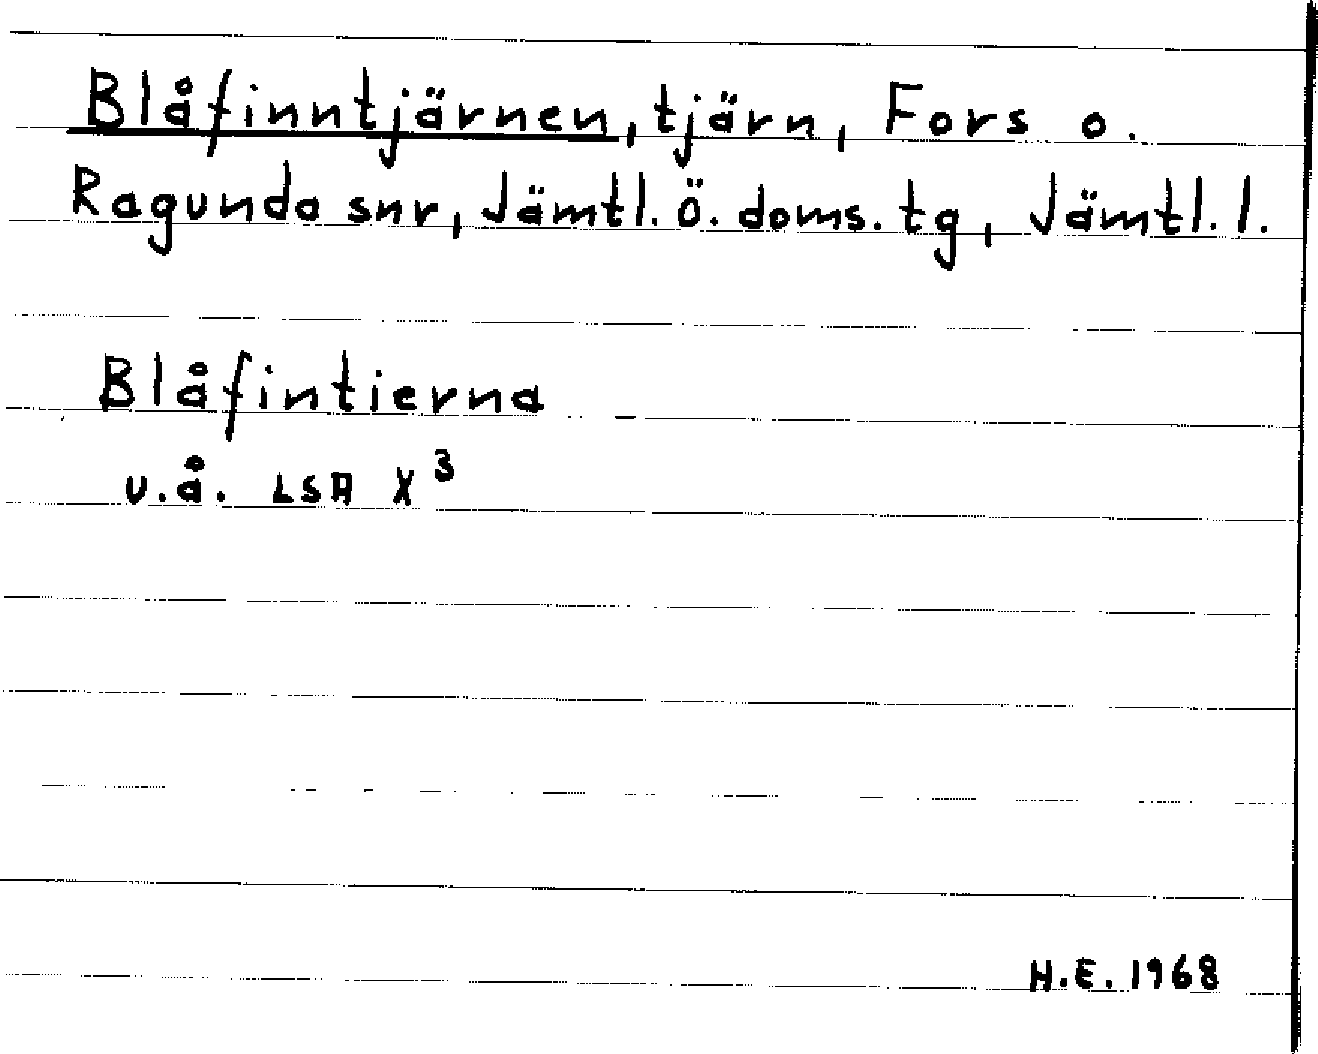 Blåfinntjärnen, tjärn, Fors o.
Ragunda snr, Jämtl. ö. doms. tg, Jämtl. l.
Blåfintierna
u.å. LSA X³
H.E. 1968